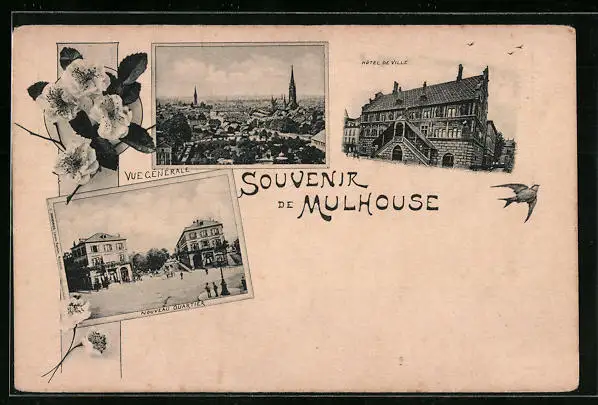 HÔTEL DE VILLE
VUE GÉNÉRALE
SOUVENIR
DE MULHOUSE
NOUVEAU QUARTIER